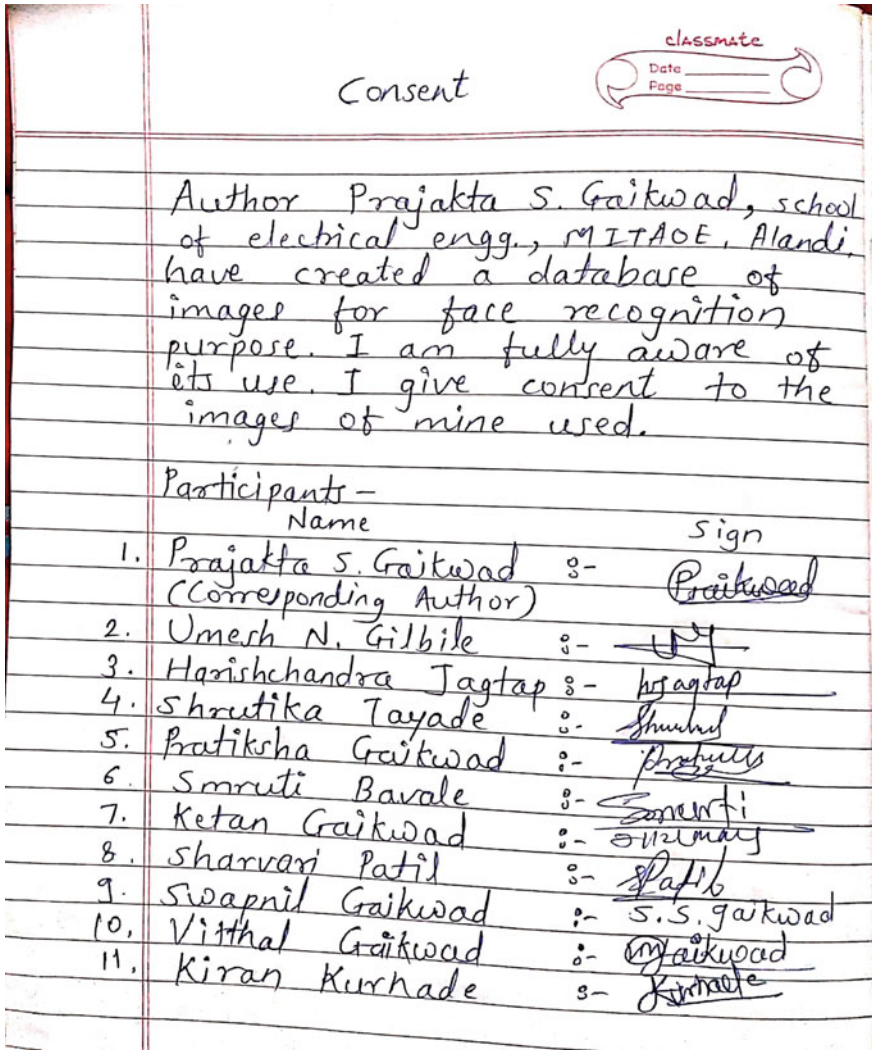 classmate
Date
Page
Consent
Author Prajakta S. Gaikwad, school
of electrical engg., MITAOE, Alandi,
have created a database of
images for face recognition
purpose. I am fully aware of
its use. I give consent to the
images of mine used.
Participants –
Name Sign
1. Prajakta S. Gaikwad :-
(Corresponding Author)
2. Umesh N. Gilbile :-
3. Harishchandra Jagtap :- hsjagtap
4. Shrutika Tayade :-
5. Pratiksha Gaikwad :-
6. Smruti Bavale :- Smruti
7. Ketan Gaikwad :-
8. Sharvari Patil :- SPatil
9. Swapnil Gaikwad :- S.S. gaikwad
10. Vitthal Gaikwad :-
11. Kiran Kurhade :-